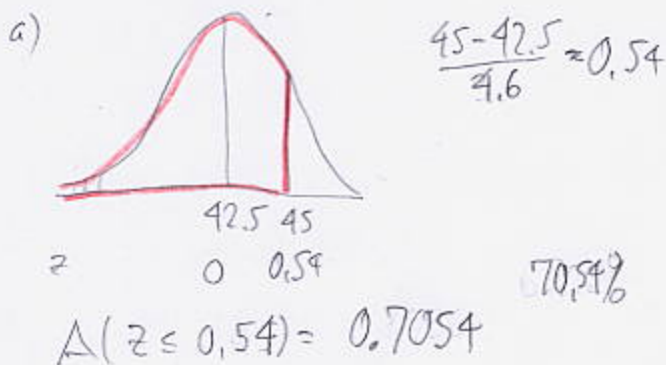 a)
45-42.5
4.6
≈0.54
42.5 45
z 0 0,54
70,54%
A(z≤0,54)= 0.7054